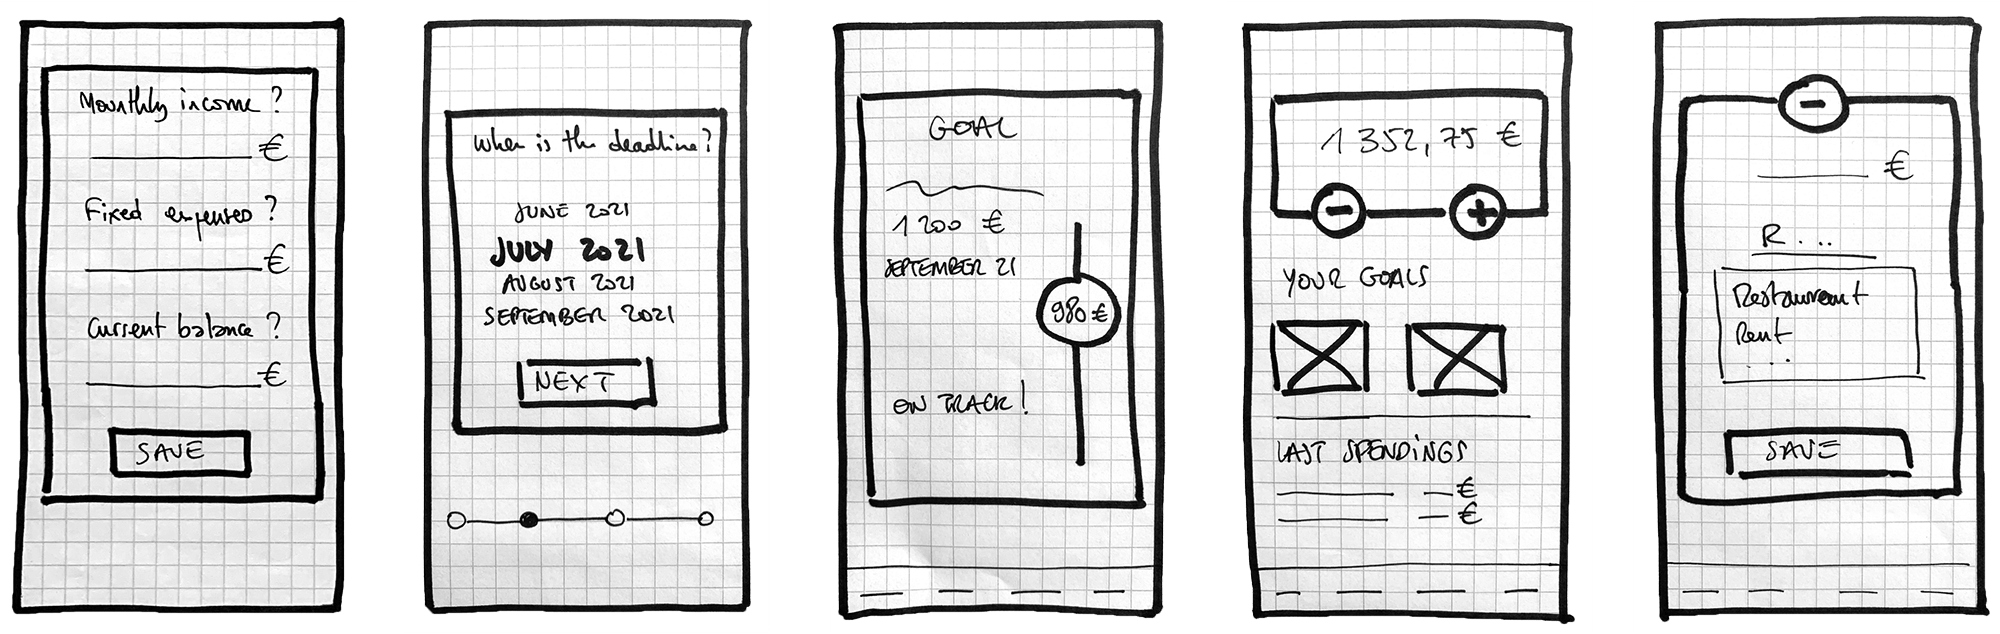 Mounthly income ?
€
Fixed expenses ?
€
Current balance ?
€
SAVE
When is the deadline ?
JUNE 2021
JULY 2021
AUGUST 2021
SEPTEMBER 2021
NEXT
GOAL
1 200 €
SEPTEMBER 21
980 €
ON TRACK !
1 352, 75 €
-
+
YOUR GOALS
LAST SPENDINGS
€
€
-
€
R . . .
Restaurant
Rent
. . .
SAVE